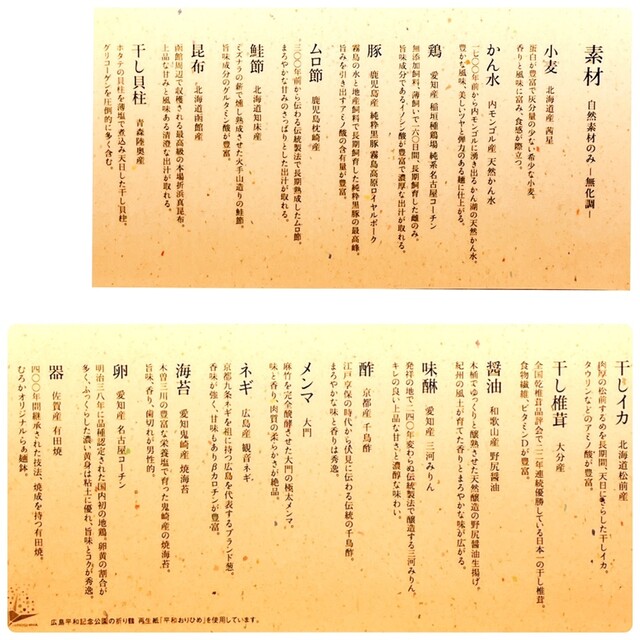 素材 自然素材のみ ―無化調―
小麦 北海道産 茜星
蛋白が豊富で灰分量の少ない希少な小麦。
香りと風味に富み、食感が際立つ。
かん水 内モンゴル産 天然かん水
一七〇〇年前から内モンゴルに湧き出るかん湖の天然かん水。
豊かな風味、美しいツヤと弾力のある麺に仕上がる。
鶏 愛知産 稲垣種鶏場 純系名古屋コーチン
無添加飼料、薄飼いで一六〇日間、長期飼育した雌のみ。
旨味成分であるイノシン酸が豊富で濃厚な出汁が取れる。
豚 鹿児島産 純粋黒豚 霧島高原ロイヤルポーク
霧島の水と地産飼料で長期飼育した純粋黒豚の最高峰。
旨みを引き出すアミノ酸の含有量が豊富。
ムロ節 鹿児島枕崎産
三〇〇年前から伝わる伝統製法で長期熟成したムロ節。
まろやかな甘みのさっぱりとした出汁が取れる。
鮭節 北海道知床産
ミズナラの薪で燻し熟成させた火手山造りの鮭節。
旨味成分のグルタミン酸が豊富。
昆布 北海道函館産
函館周辺で収穫される最高級の本場折浜真昆布。
上品な甘みと風味ある清澄な出汁が取れる。
干し貝柱 青森陸奥産
ホタテの貝柱を薄塩で煮込み天日干しした干し貝柱。
グリコーゲンを圧倒的に多く含む。
干しイカ 北海道松前産
肉厚の松前するめを長期間、天日にさらした干しイカ。
タウリンなどのアミノ酸が豊富。
干し椎茸 大分産
全国乾椎茸品評会で二二年連続優勝している日本一の干し椎茸。
食物繊維、ビタミンDが豊富。
醤油 和歌山産 野尻醤油
木桶でゆっくりと醸熟させた天然醸造の野尻醤油生揚げ。
紀州の風土が育てた香りとまろやかな味が広がる。
味醂 愛知産 三河みりん
発祥の地で二四〇年変わらぬ伝統製法で醸造する三河みりん。
キレの良い上品な甘さと濃醇な味わい。
酢 京都産 千鳥酢
江戸享保の時代から伏見に伝わる伝統の千鳥酢。
まろやかな味と香りは秀逸。
メンマ 大門
麻竹を完全醗酵させた大門の極太メンマ。
味と香り、肉質の柔らかさが絶品。
ネギ 広島産 観音ネギ
京都九条ネギを祖に持つ広島を代表するブランド葱。
香味が強く、甘味もありβカロチンが豊富。
海苔 愛知鬼崎産 焼海苔
木曽三川の豊富な栄養塩で育った鬼崎産の焼海苔。
旨味、香り、歯切れが男性的。
卵 愛知産 名古屋コーチン
明治三八年に品種認定された国内初の地鶏。卵黄の割合が
多く、ふっくらした濃い黄身は粘土に優れ、旨味とコクが秀逸。
器 佐賀産 有田焼
四〇〇年間継承された技法・焼成を持つ有田焼。
むろかオリジナルらぁ麺鉢。
広島平和記念公園の折り鶴 再生紙「平和おりひめ」を使用しています。